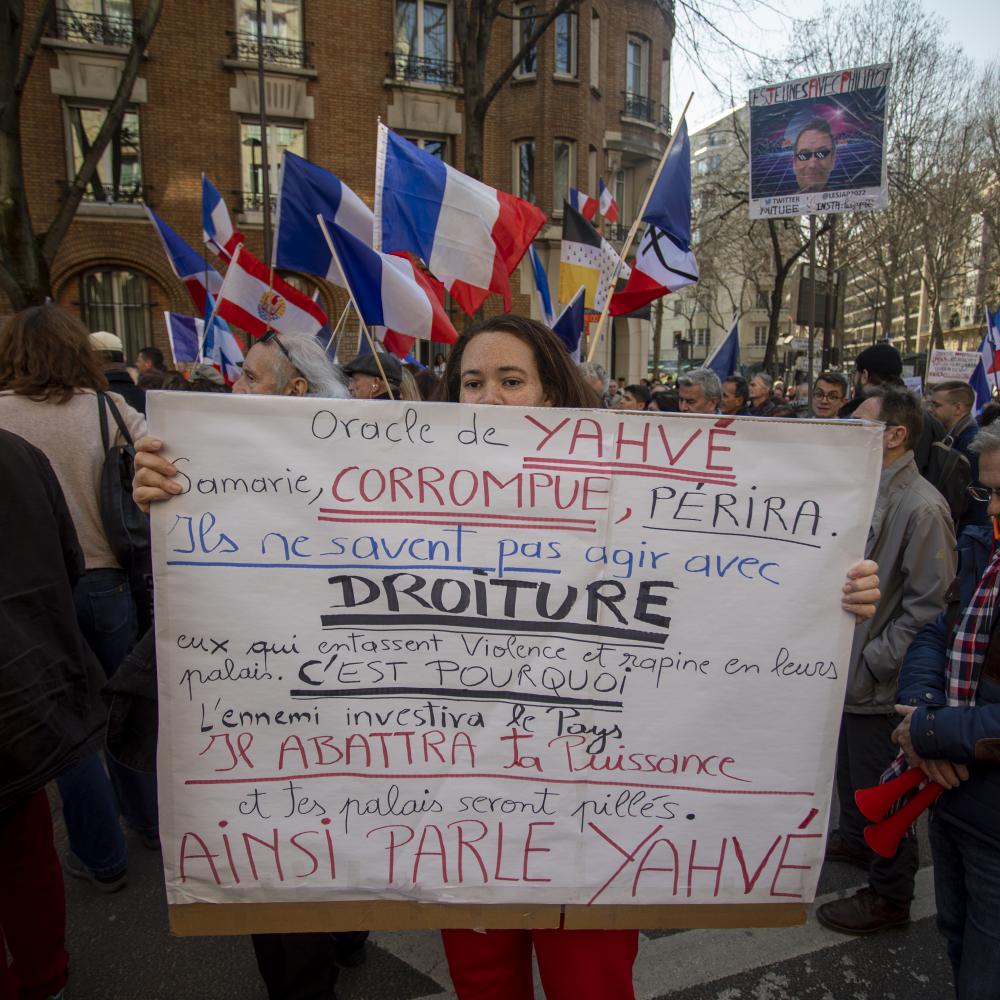 LES JEUNES AVEC PHILIPPOT
TWITTER @LESJAP2022
YOUTUBE INSTA: lesjaplp
Oracle de YAHVÉ
Samarie, CORROMPUE, PÉRIRA.
Ils ne savent pas agir avec
DROiTURE
eux qui entassent Violence et rapine en leurs
palais. C'EST POURQUOi
L'ennemi investira le Pays
Il ABATTRA ta Puissance
et tes palais seront pillés.
AiNSi PARLE YAHVÉ